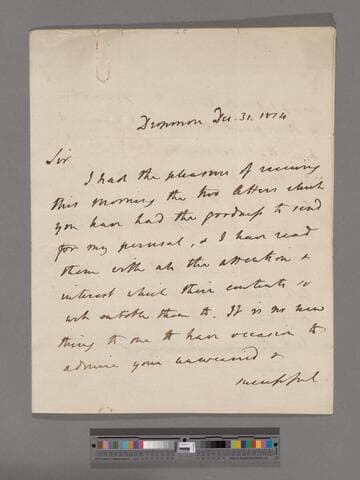 Dropmore Dec. 31. 1814
Sir
I had the pleasure of receiving
this morning the two letters which
you have had the goodness to send
for my perusal, & I have read
them with all the attention &
interest which their contents so
well entitle them to. It is no new
thing to me to have occasion to
admire your unwearied &
successful